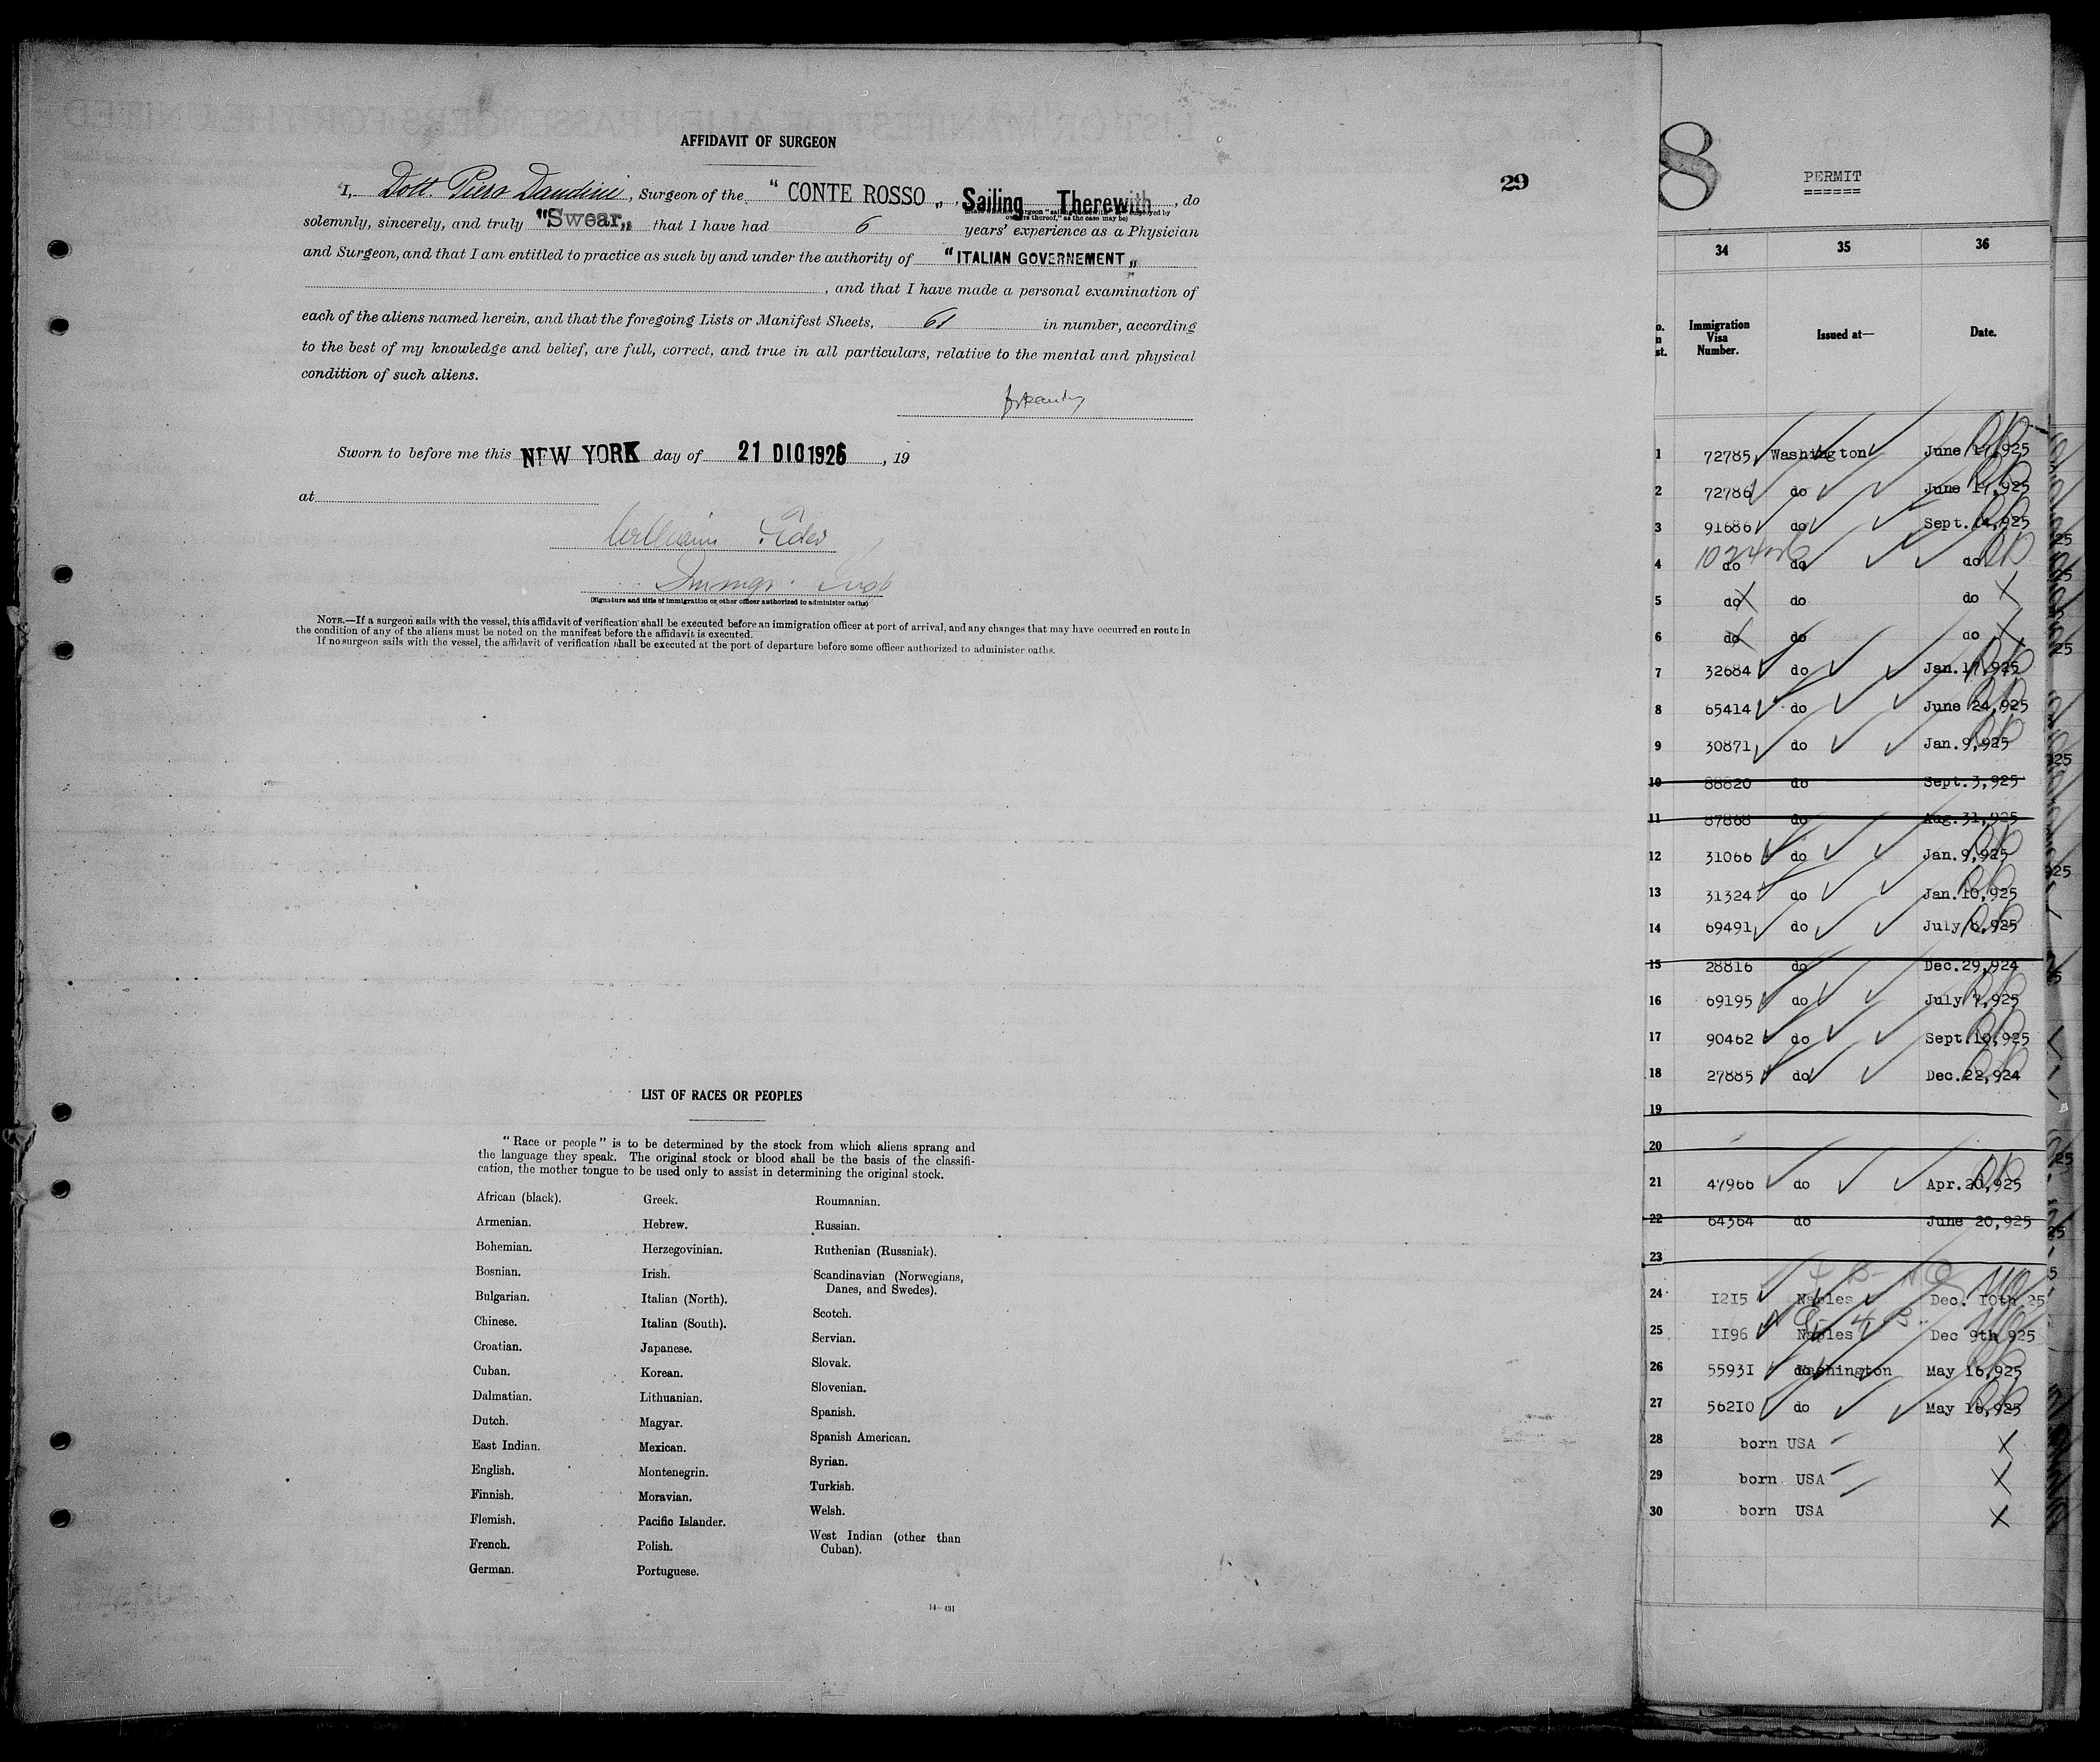 AFFIDAVIT OF SURGEON
I, Dott. Piero Dandini, Surgeon of the "CONTE ROSSO", Sailing Therewith, do
solemnly, sincerely, and truly "Swear" that I have had 6 years' experience as a Physician
and Surgeon, and that I am entitled to practice as such by and under the authority of "ITALIAN GOVERNEMENT"
, and that I have made a personal examination of
each of the aliens named herein, and that the foregoing Lists or Manifest Sheets, 61 in number, according
to the best of my knowledge and belief, are full, correct, and true in all particulars, relative to the mental and physical
condition of such aliens.
Sworn to before me this NEW YORK day of 21 DIC 1926, 19
at
William
Immgr. Insp
(Signature and title of immigration or other officer authorized to administer oaths)
NOTE.—If a surgeon sails with the vessel, this affidavit of verification shall be executed before an immigration officer at port of arrival, and any changes that may have occurred en route in
the condition of any of the aliens must be noted on the manifest before the affidavit is executed.
If no surgeon sails with the vessel, the affidavit of verification shall be executed at the port of departure before some officer authorized to administer oaths.
29
LIST OF RACES OR PEOPLES
"Race or people" is to be determined by the stock from which aliens sprang and
the language they speak. The original stock or blood shall be the basis of the classifi-
cation, the mother tongue to be used only to assist in determining the original stock.
African (black).
Armenian.
Bohemian.
Bosnian.
Bulgarian.
Chinese.
Croatian.
Cuban.
Dalmatian.
Dutch.
East Indian.
English.
Finnish.
Flemish.
French.
German.
Greek.
Hebrew.
Herzegovinian.
Irish.
Italian (North).
Italian (South).
Japanese.
Korean.
Lithuanian.
Magyar.
Mexican.
Montenegrin.
Moravian.
Pacific Islander.
Polish.
Portuguese.
Roumanian.
Russian.
Ruthenian (Russniak).
Scandinavian (Norwegians,
Danes, and Swedes).
Scotch.
Servian.
Slovak.
Slovenian.
Spanish.
Spanish American.
Syrian.
Turkish.
Welsh.
West Indian (other than
Cuban).
14—431
8
PERMIT
34 35 36
Immigration Visa Number. Issued at— Date.
1 72785 Washington June 17,925
2 72786 do June 17,925
3 91686 do Sept.14,925
4 do do do
5 do do do
6 do do do
7 32684 do Jan.17,925
8 65414 do June 24,925
9 30871 do Jan.9,925
10 88820 do Sept.3,925
11 87868 do Aug.31,925
12 31066 do Jan.9,925
13 31324 do Jan.10,925
14 69491 do July 8,925
15 28816 do Dec.29,924
16 69195 do July 7,925
17 90462 do Sept.10,925
18 27885 do Dec.22,924
19
20
21 47966 do Apr.20,925
22 64364 do June 20,925
23
24 1215 Naples Dec. 10th 25
25 1196 Naples Dec 9th 925
26 55931 Washington May 16,925
27 56210 do May 16,925
28 born USA
29 born USA
30 born USA